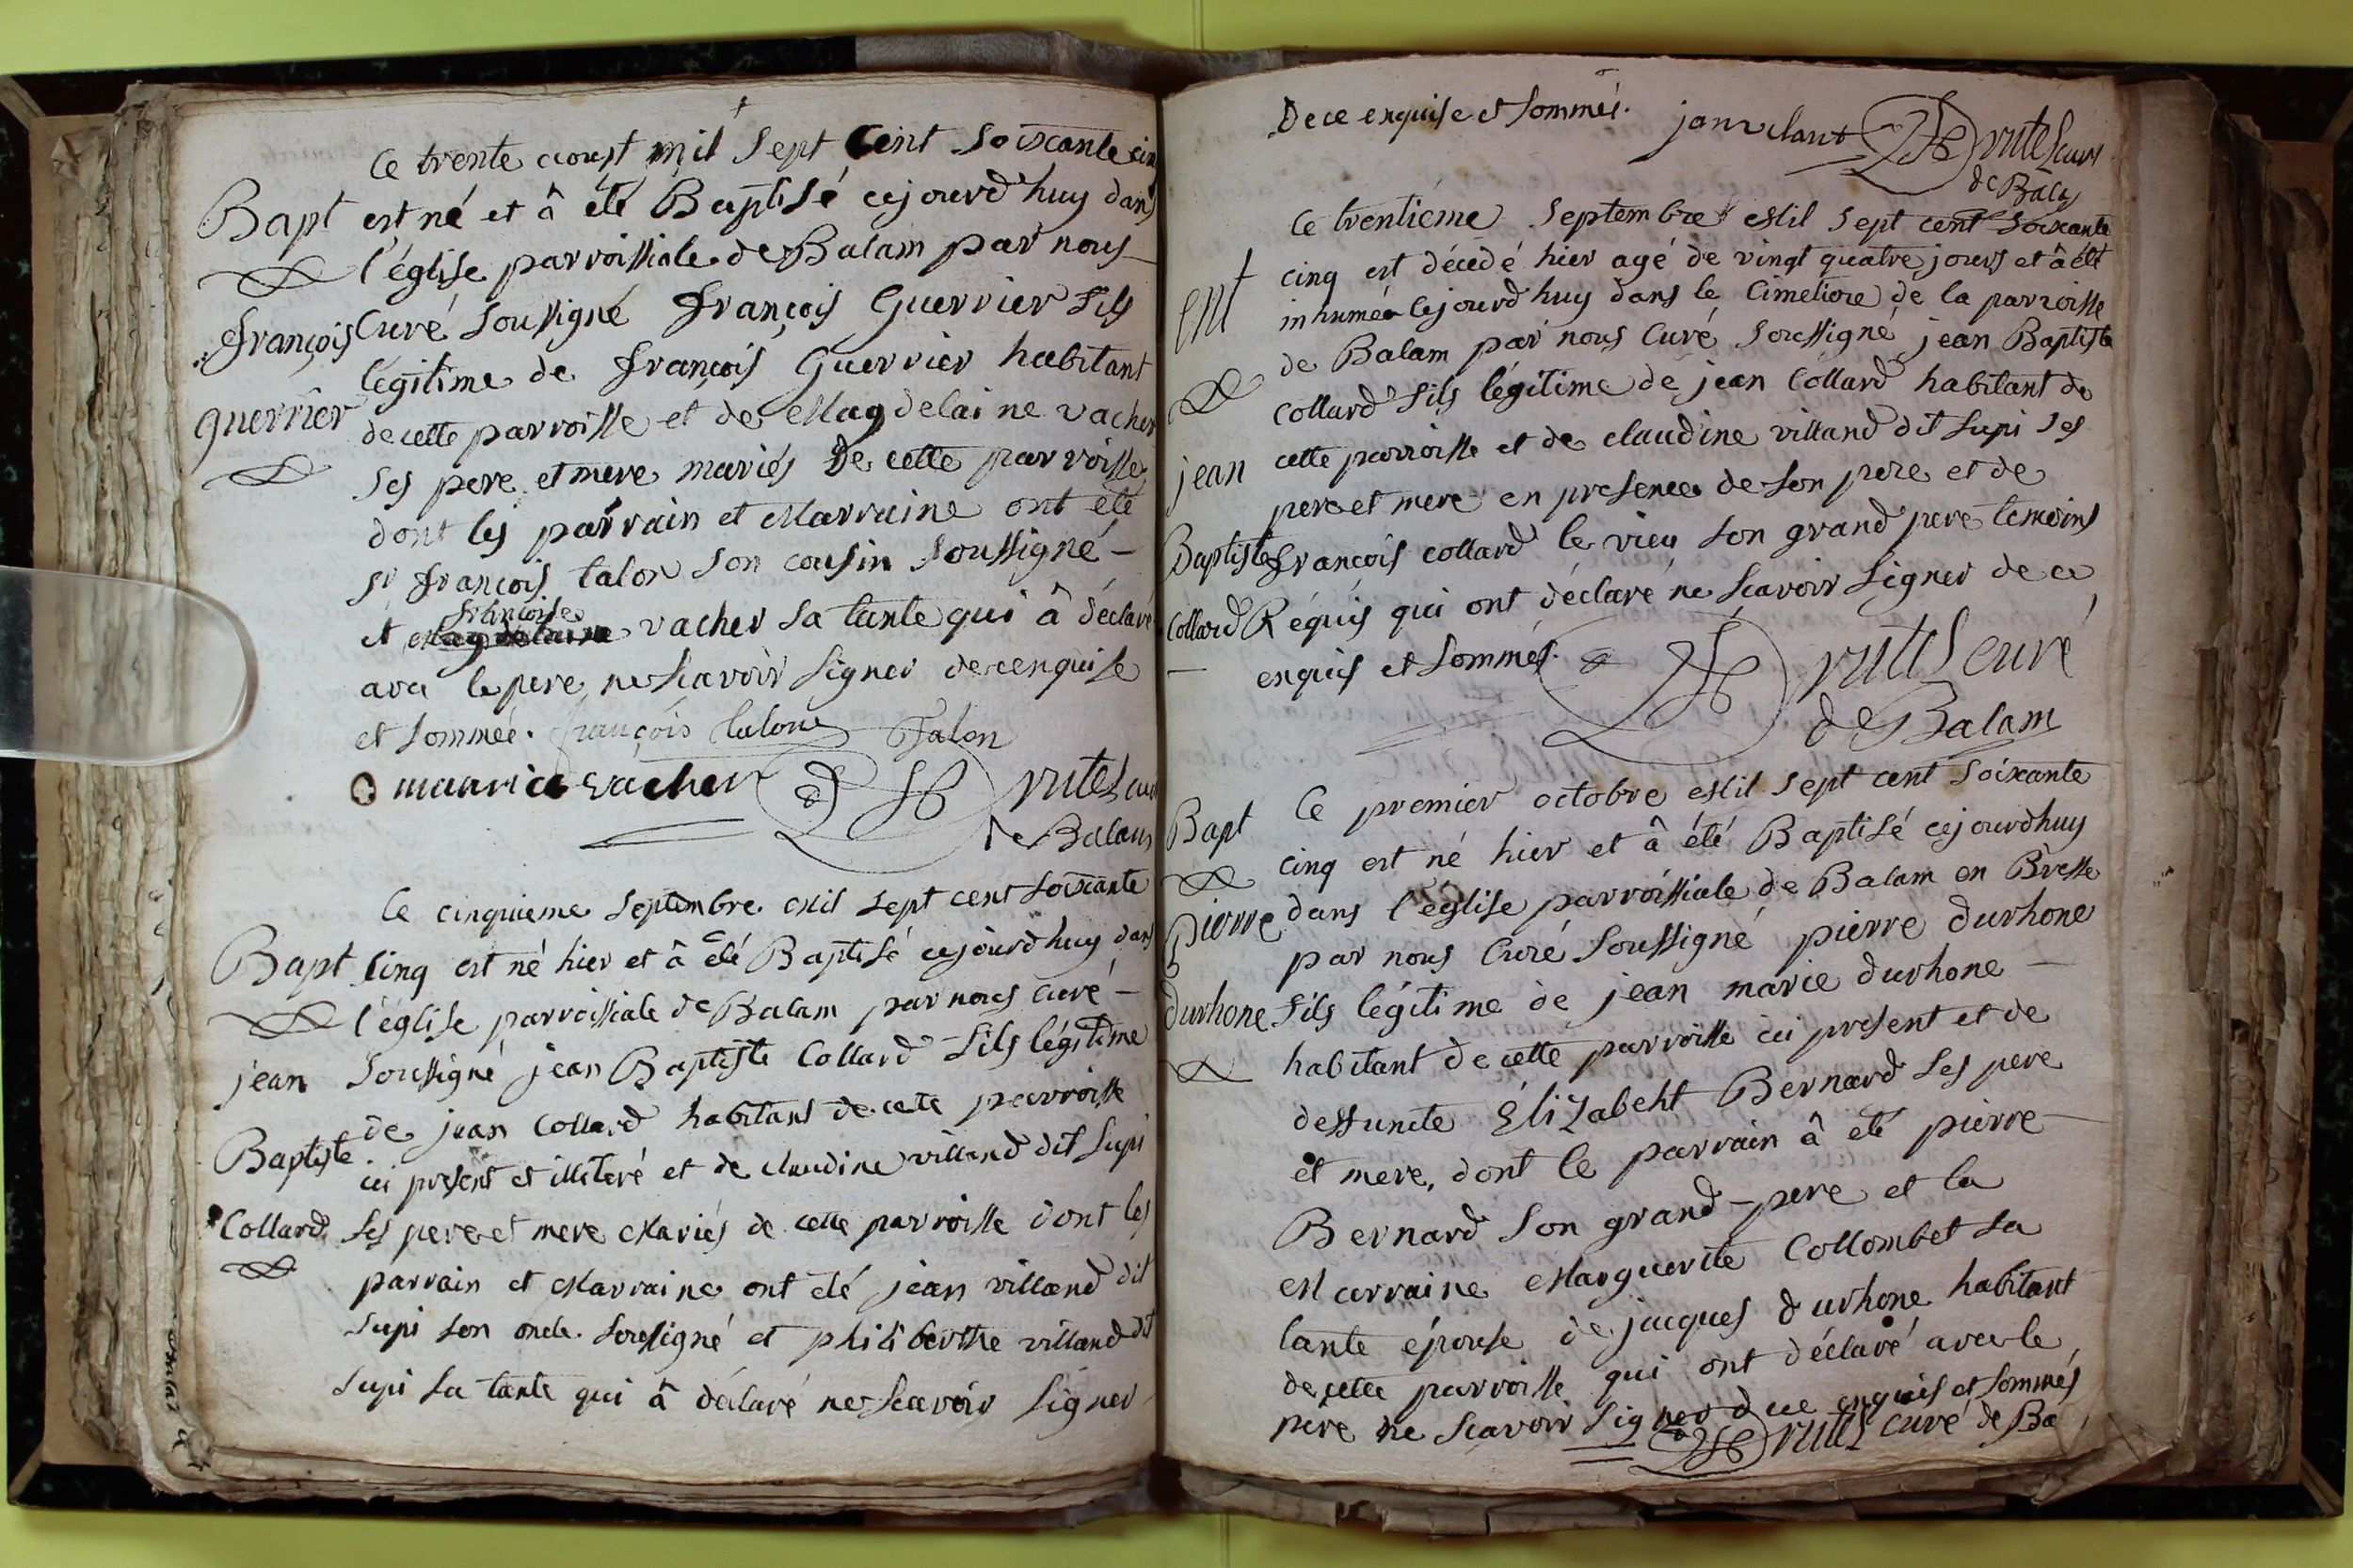 Ce trente aoust mil Sept Cent Soixante cin
Bapt est né et â été Baptisé cejourd'huy dans
l'église parroissiale de Balam par nous
françois Curé Soussigné françois Guerrier fils
légitime de françois Guerrier habitant
guerrier de cette parroisse et de Magdelaine vacher
ses pere et mere mariés De cette parroisse
dont les parrain et Marraine ont été
Sr françois talon Son cousin Soussigné
françoise
et Magdelaine vacher Sa tante qui â déclaré
avec le pere ne Scavoir Signer de ce enquise
et Sommée. françois talon Talon
maurice vacher
de Balam
Ce cinquieme Septembre Mil Sept cent Soixante
Bapt Cinq est né hier et â été Baptisé cejourd'huy dans
l'église parroissiale de Balam par nous curé
jean Soussigné jean Baptiste Collard fils légitime
de jean Collard habitant de cette parroisse
Baptiste ici present et illiteré et de claudine villand dit Supi
Collard Ses pere et mere Mariés de cette parroisse dont les
parrain et Marraine ont été jean villand dit
Supi Son oncle Soussigné et philiberthe villand dit
Supi Sa tante qui â déclaré ne Scavoir Signer
De ce enquise et Sommée.
de Bala
Ce trentième Septembre Mil Sept cent Soixante
cinq est décédé hier agé de vingt quatre jours et â été
ent inhumé cejourd'huy dans le Cimetiere de la parroisse
de Balam par nous Curé Soussigné jean Baptiste
collard fils légitime de jean Collard habitant de
jean cette parroisse et de claudine villand dit Supi Ses
pere et mere en presence de Son pere et de
Baptiste françois collard le vieu Son grand pere temoins
Collard Réquis qui ont déclaré ne Scavoir Signer de ce
enquis et Sommés. curé
de Balam
Ce premier octobre Mil Sept cent Soixante
Bapt cinq est né hier et â été Baptisé cejourdhuy
dans l'église parroissiale de Balam en Bresse
pierre par nous Curé Soussigné pierre durhone
durhone fils légitime de jean marie durhone
habitant de cette parroisse ici present et de
deffuncte Élizabeht Bernard Ses pere
et mere, dont le parrain â été pierre
Bernard Son grand-pere et la
Marraine Marguerite Collombet Sa
tante épouse de jacques durhone habitant
de cette parroisse qui ont déclaré avec le
père ne Scavoir Signer de ce enquis et Sommés
curé de Ba